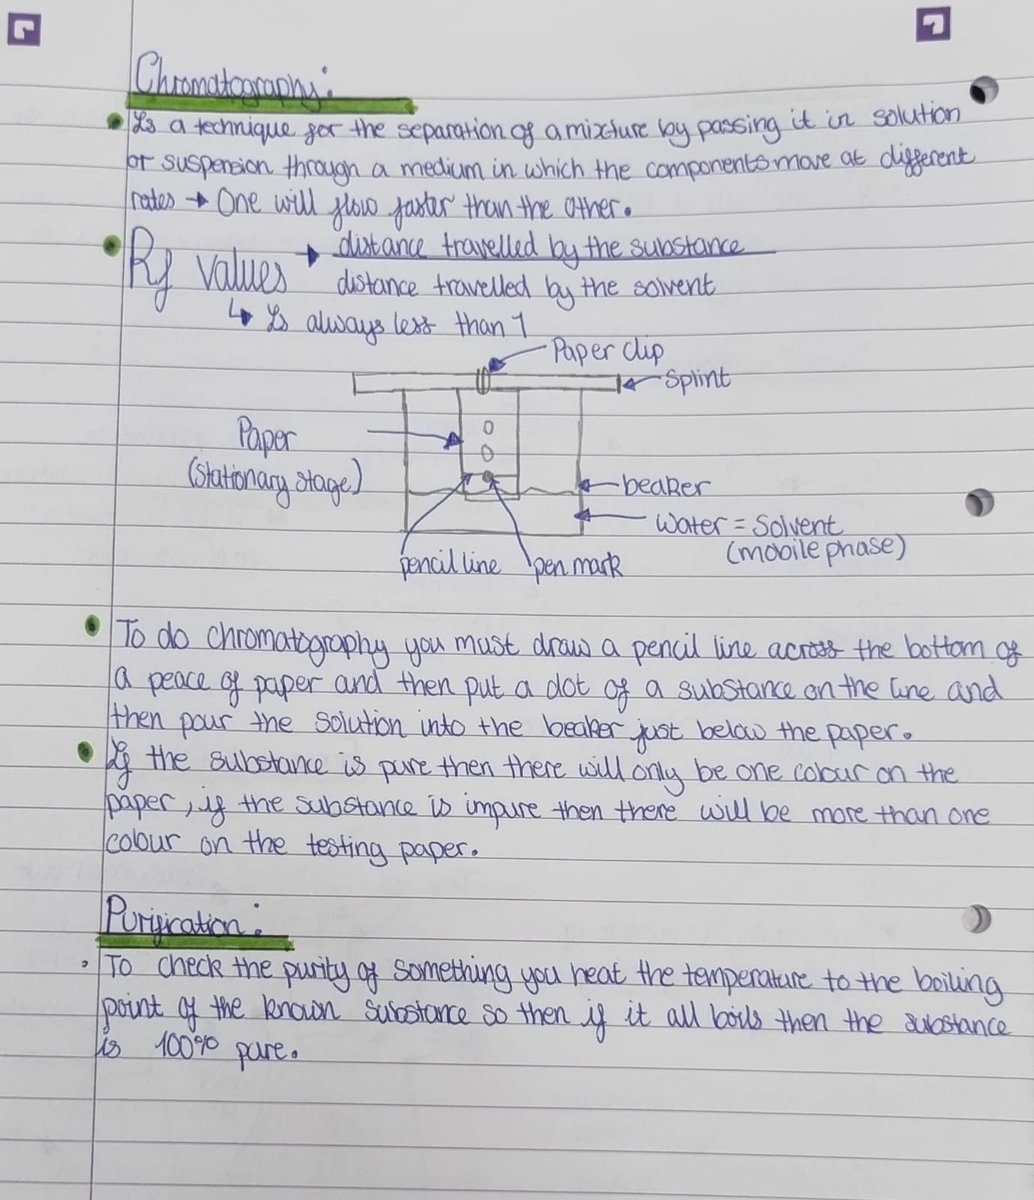 Chromatography:
• Is a technique for the separation of a mixture by passing it in solution
or suspension through a medium in which the components move at different
rates → One will flow faster than the other.
• Rf values → distance travelled by the substance
distance travelled by the solvent
↳ Is always less than 1
Paper clip
Splint
Paper
(stationary stage)
beaker
Water = Solvent
(mobile phase)
pencil line
pen mark
• To do chromatography you must draw a pencil line across the bottom of
a peace of paper and then put a dot of a substance on the line and
then pour the solution into the beaker just below the paper.
• If the substance is pure then there will only be one colour on the
paper, if the substance is impure then there will be more than one
colour on the testing paper.
Purification:
• To check the purity of something you heat the temperature to the boiling
point of the known substance so then if it all boils then the substance
is 100% pure.